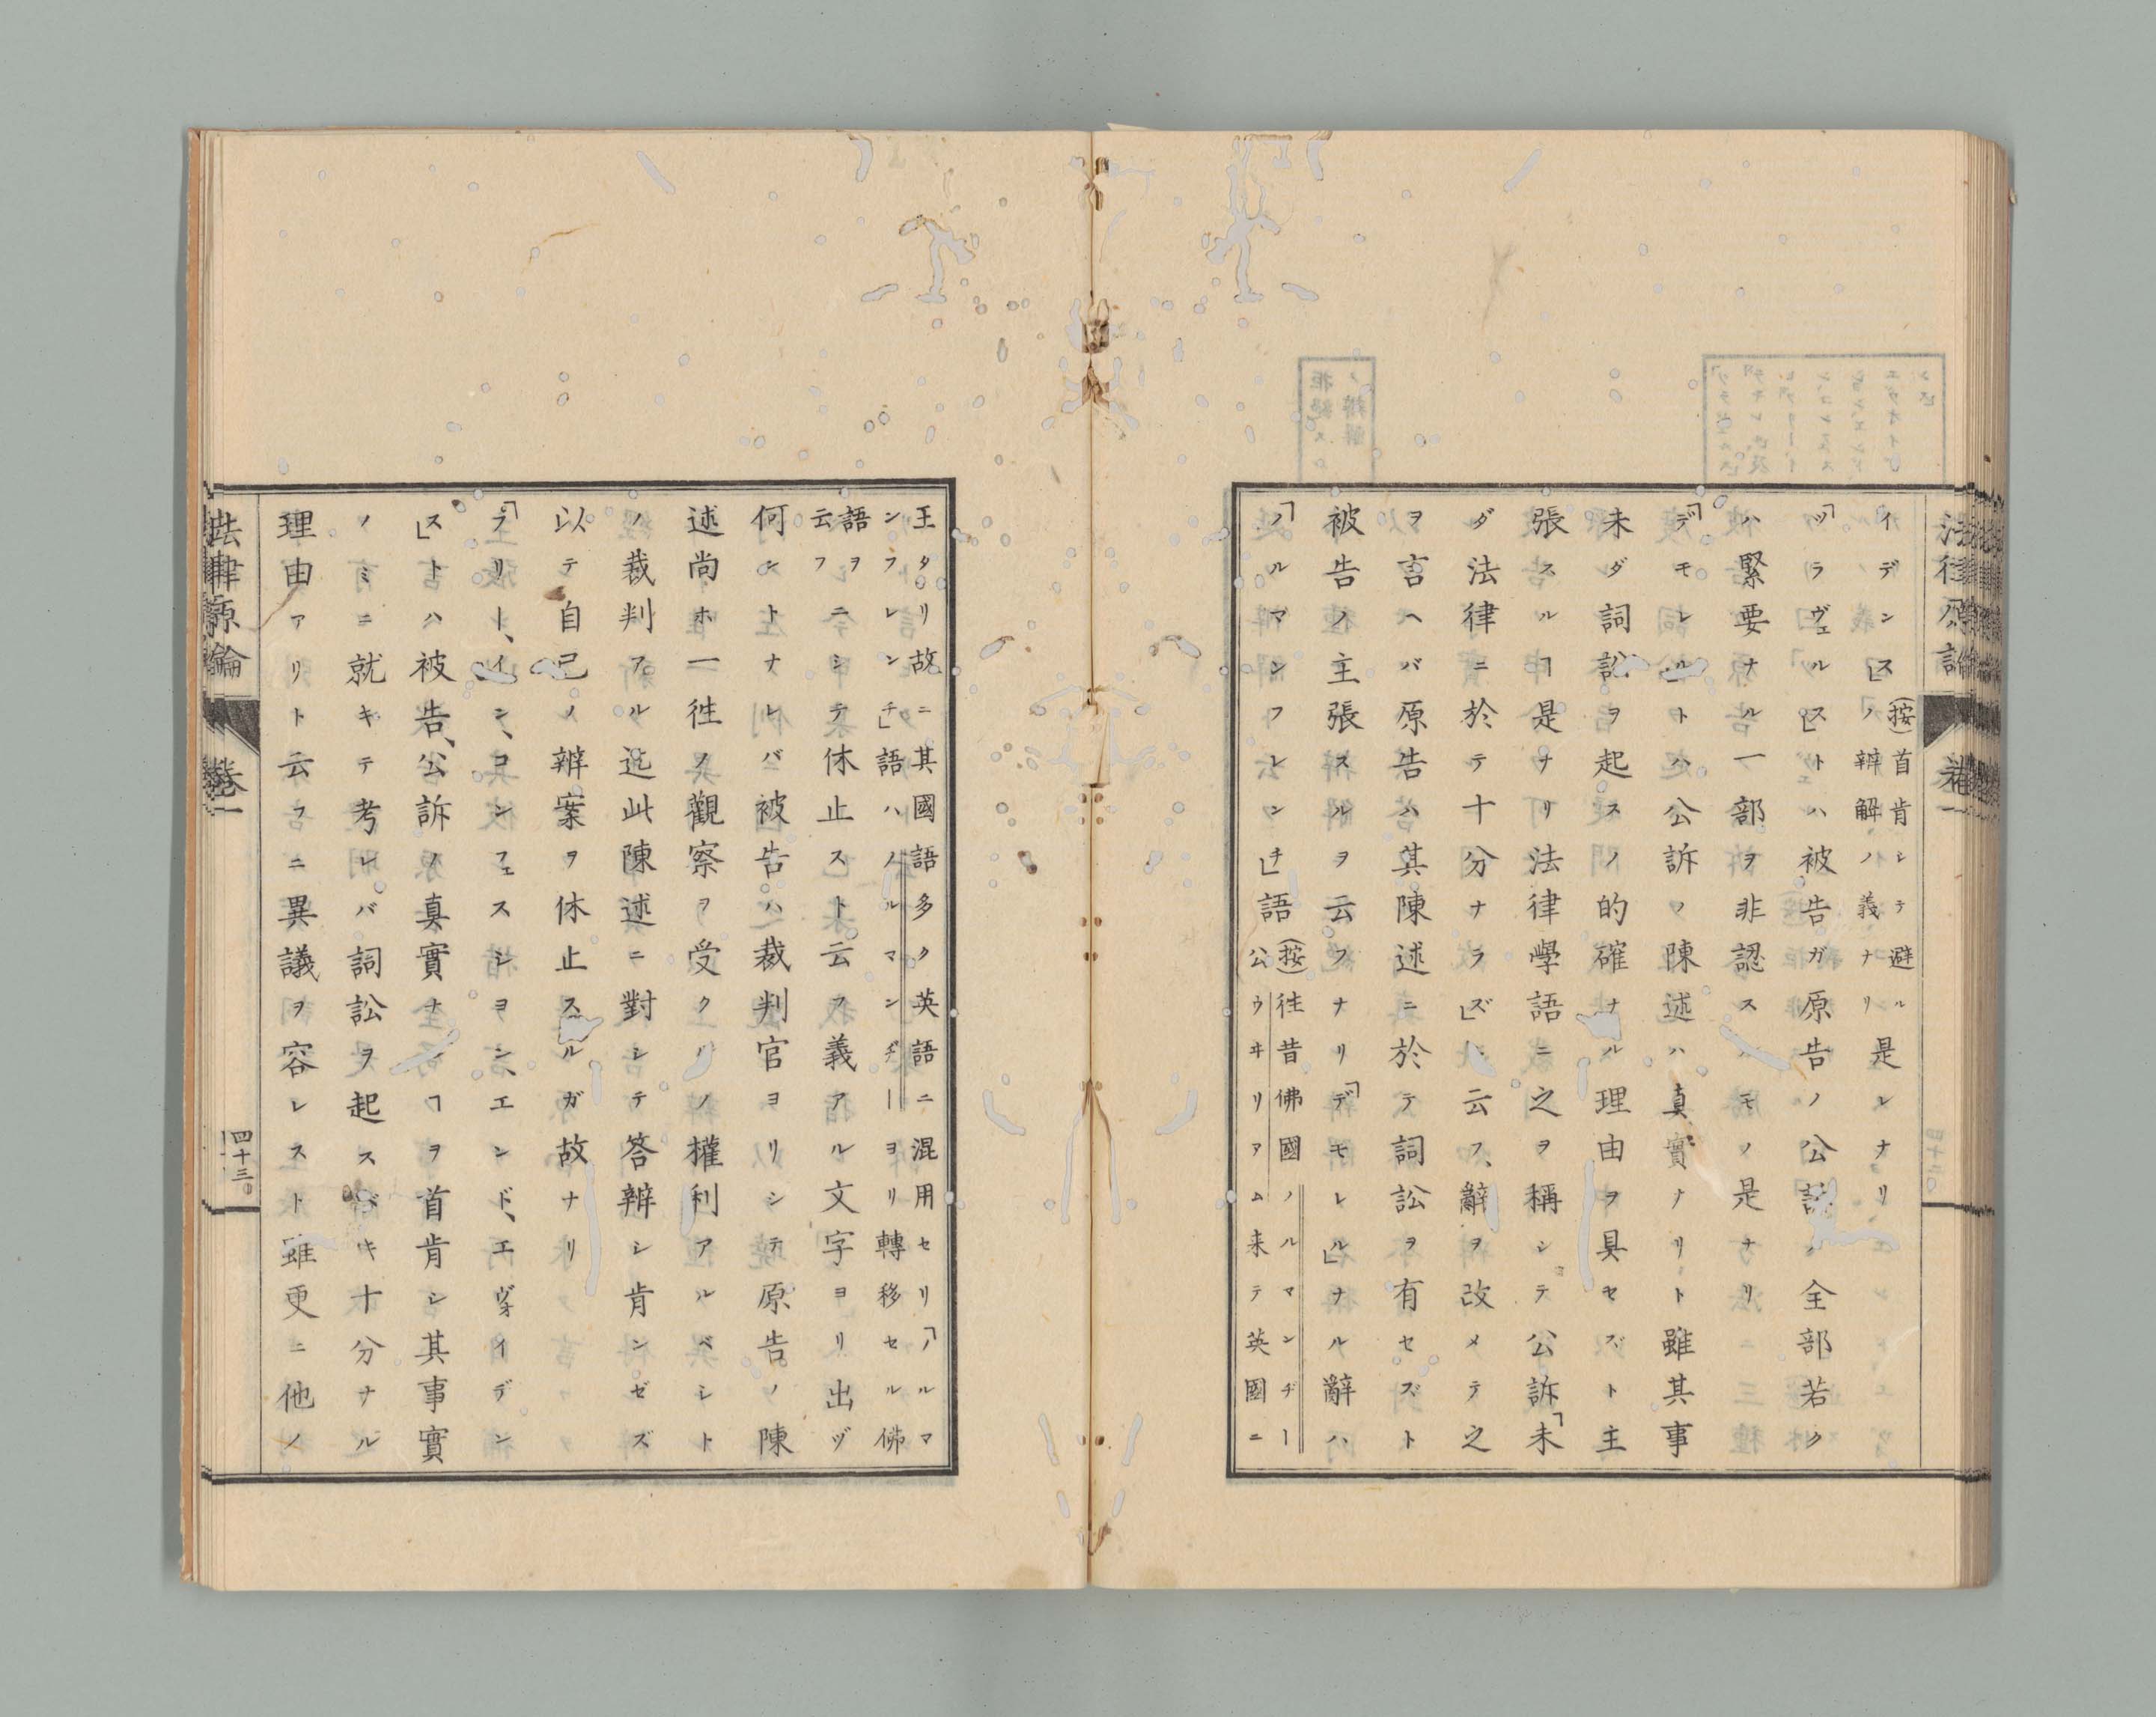 イデンス」(按)首肯シテ避ルノ辨解ノ義ナリ是レナリ
「ツラヴェルス」トハ被告ガ原告ノ公訴ノ全部若クハ緊要ナル一部ヲ非認スルモノ是ナリ
「デモレル」トハ公訴ノ陳述ハ真實ナリト雖其事
未ダ詞訟ヲ起スノ的確ナル理由ヲ具セズト主
張スルヿ是ナリ法律學語ニ之ヲ稱シテ公訴「未
ダ法律ニ於テ十分ナラズ」ト云フ、辭ヲ改メテ之
ヲ言ヘバ原告ハ其陳述ニ於テ詞訟ヲ有セズト
被告ノ主張スルヲ云フナリ「デモレル」ナル辭ハ
「ノルマンフレンチ」語(按)往昔佛國ノルマンヂー公ウヰリアム来テ英國ニ
王タリ故ニ其國語多ク英語ニ混用セリ「ノルマ
ンフレンチ」語ハノルマンヂーヨリ轉移セル佛
語ヲ云フニシテ休止スト云フ義アル文字ヨリ出ヅ
何ントナレバ被告ハ裁判官ヨリシテ原告ノ陳
述尚ホ一徃ノ觀察ヲ受クルノ權利アルベシト
ノ裁判アル迄此陳述ニ對シテ答辨シ肯ンゼズ
以テ自己ノ辨案ヲ休止スルガ故ナリ
「プリー、イン、コンフェスシヨン、エンド、エヴォイデン
ス」トハ被告、公訴ノ真實ナルヿヲ首肯シ其事實
ノミニ就キテ考レバ詞訟ヲ起スベキ十分ナル
理由アリト云フニ異議ヲ容レスト雖更ニ他ノ
法律原論 卷一 四十三